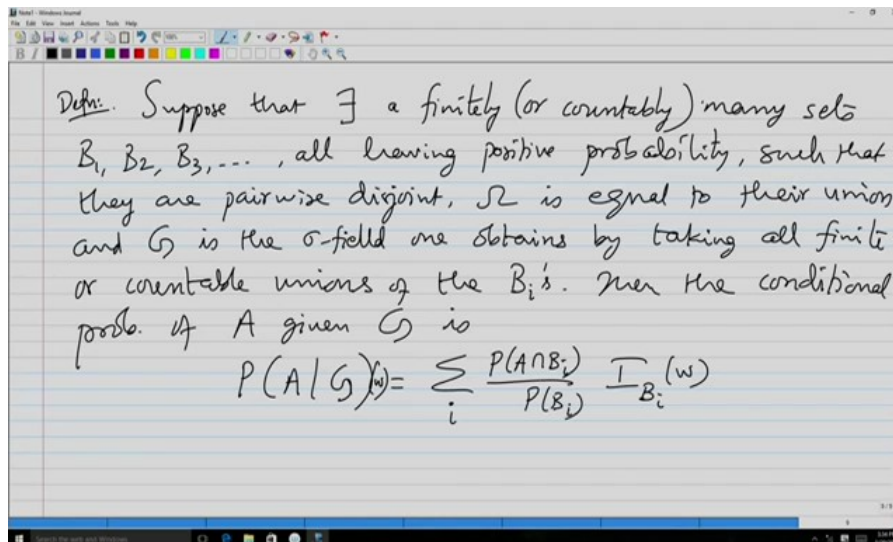 Note1 - Windows Journal
File Edit View Insert Actions Tools Help
Defn:. Suppose that ∃ a finitely (or countably) many sets
B₁, B₂, B₃, ... , all having positive probability, such that
they are pairwise disjoint, Ω is equal to their union
and G is the σ-field one obtains by taking all finite
or countable unions of the Bᵢ's. Then the conditional
prob. of A given G is
P(A/G)(w) = Σᵢ P(A∩Bᵢ)/P(Bᵢ) I_Bᵢ(w)
Search the web and Windows